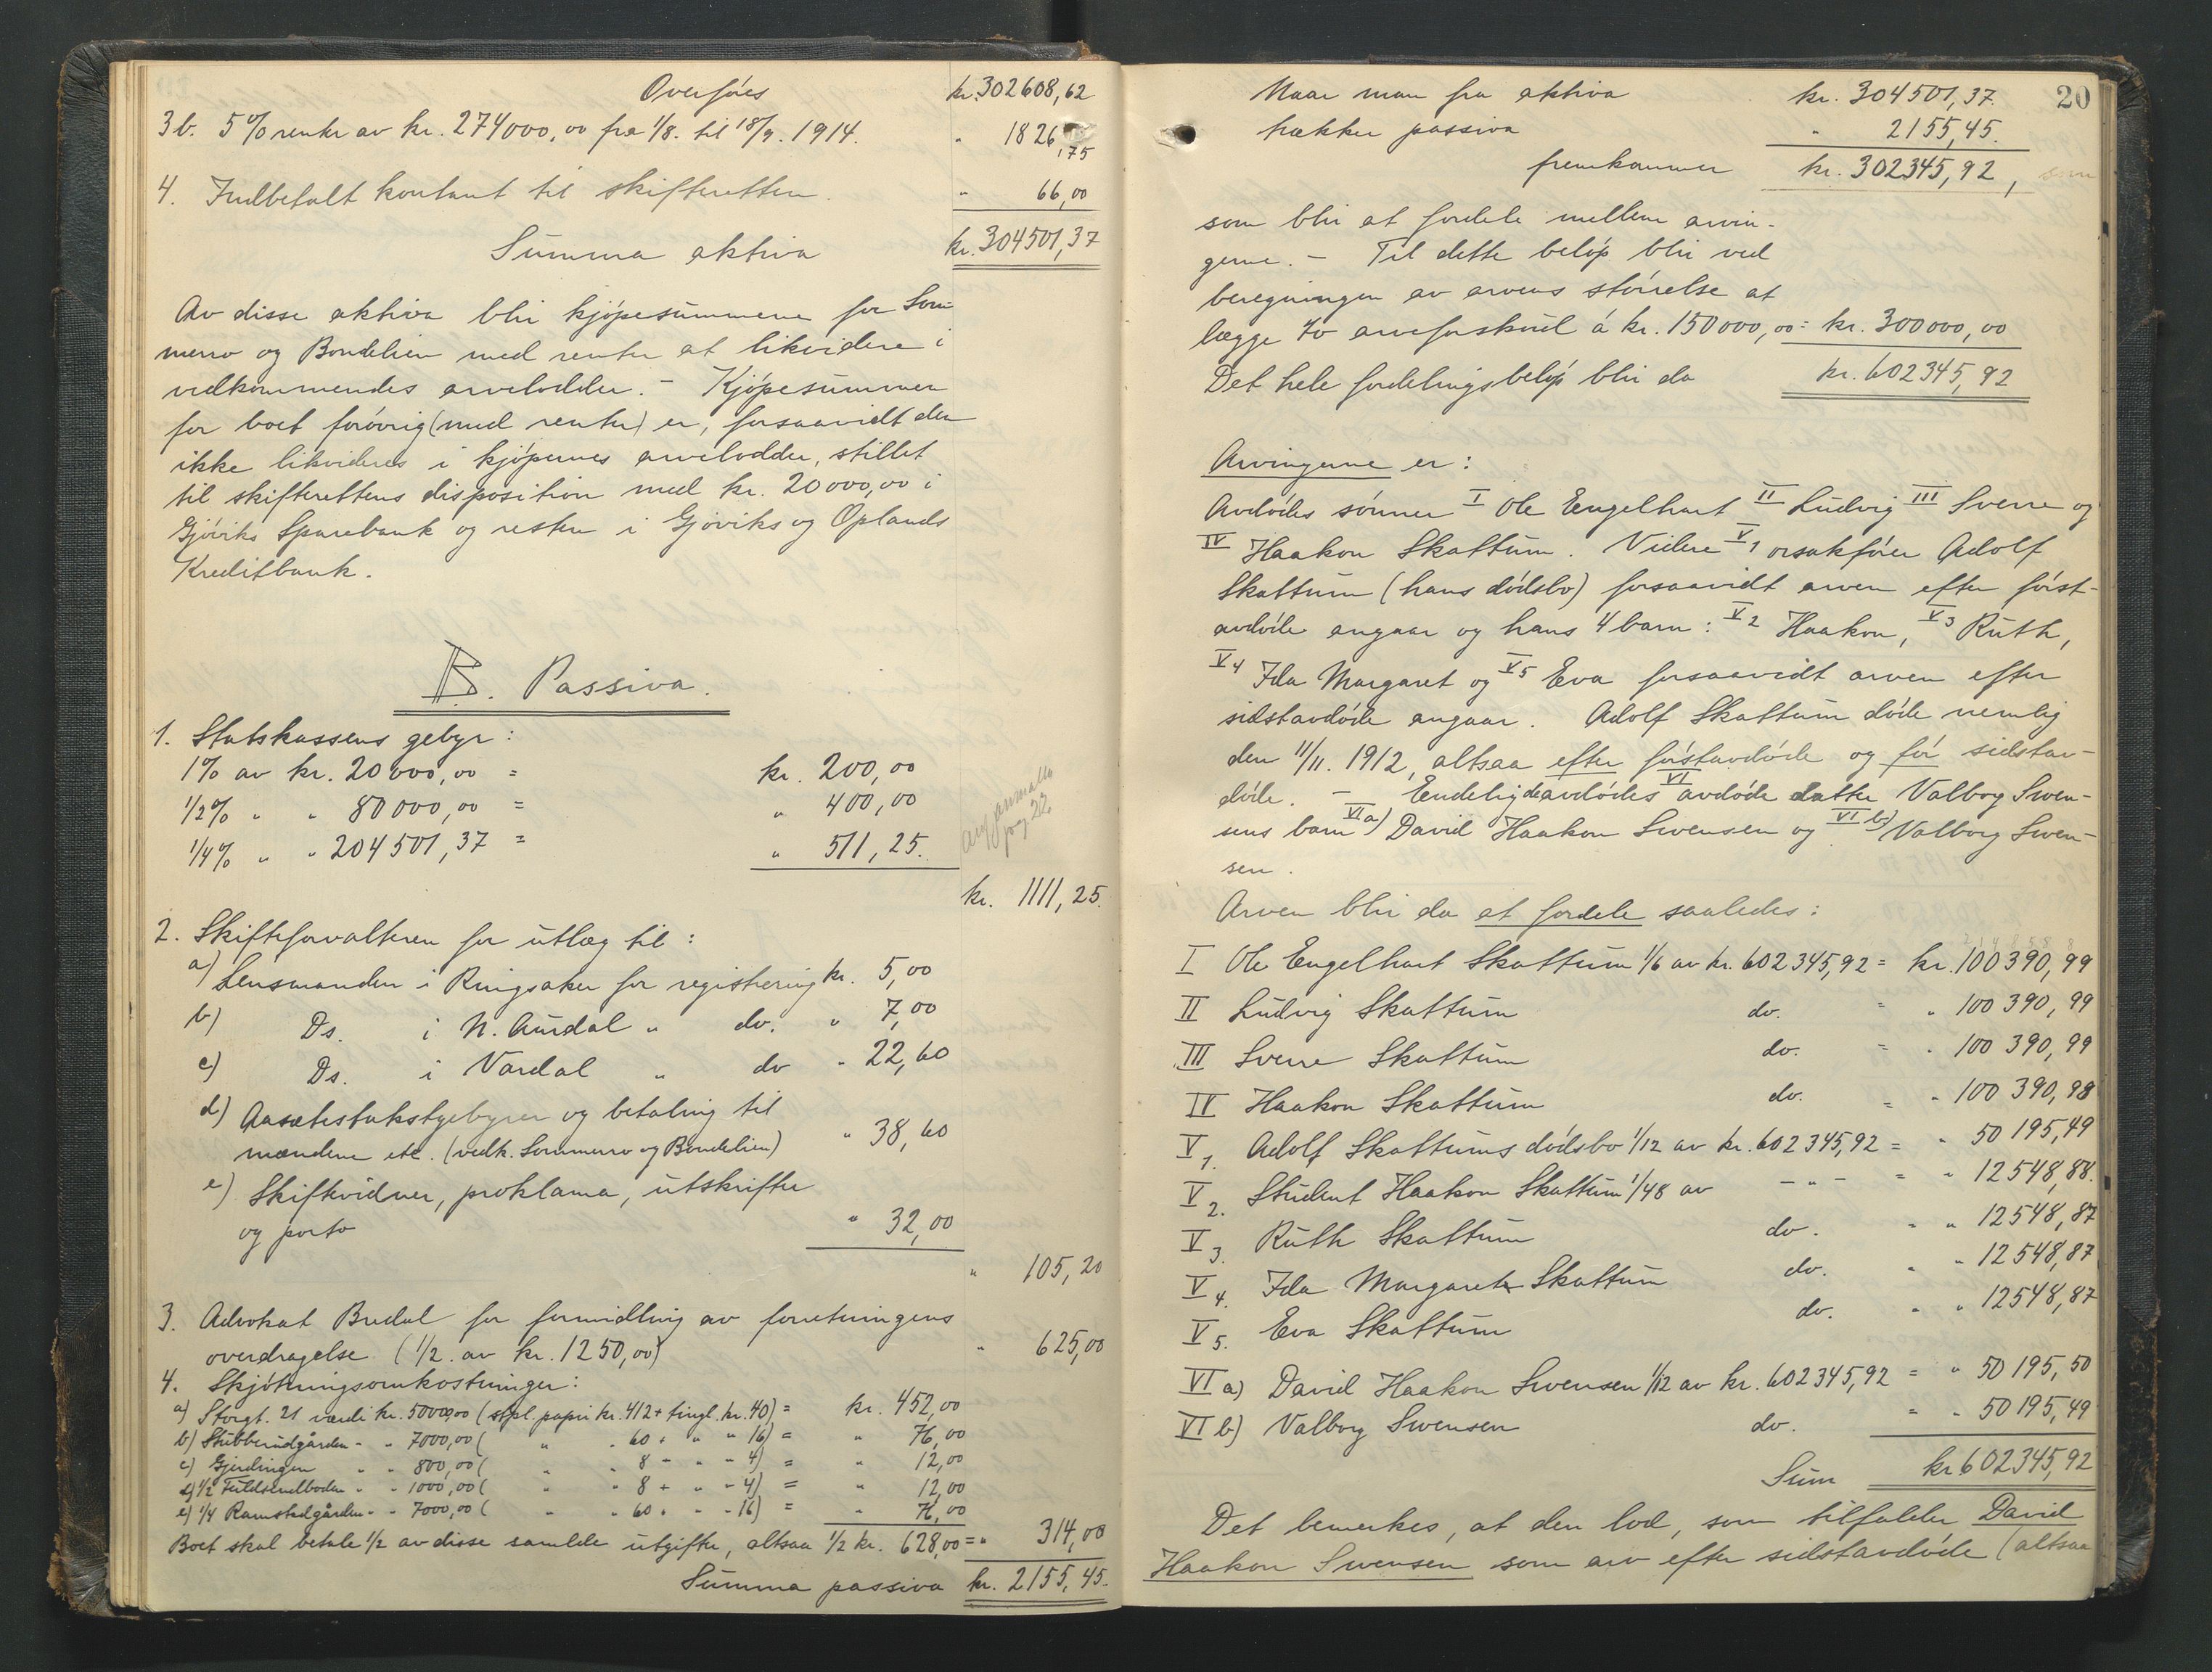 Overføres kr. 302608,62
3b. 5% renter av kr. 274000,00 fra 1/8. til 18/9. 1914. " 1826,75
4. Indbetalt kontant til skifteretten. " 66,00
Summa aktiva kr. 304501,37
Av disse aktiva blir kjøpesummene for Som-
merro og Bondelien med renter at likvidere i
vedkommendes arvelodder. – Kjøpesummen
for boet forøvrig (med renter) er, forsaavidt den
ikke likvideres i kjøpernes arvelodder, stillet
til skifterettens disposition med kr. 20000,00 i
Gjøviks Sparebank og resten i Gjøviks og Oplands
Kreditbank.
B. Passiva.
1. Statskassens gebyr:
1% av kr. 20000,00 = kr. 200,00
1/2% " " 80000,00 = " 400,00
1/4% " " 204501,37 = " 511,25.
kr. 1111,25.
pag 22
2. Skifteforvalteren for utlæg til:
a) Lensmanden i Ringsaker for registrering kr. 5,00
b) Ds. i N. Aurdal " do. " 7,00
c) Ds. i Vardal " do " 22,60
d) Aasætestakstgebyrer og betaling til
mændene etc. (vedk. Sommerro og Bondelien) " 38,60
e) Skiftevidner, proklama, utskrifter
og porto " 32,00
" 105,20
3. Advokat Bredal for formidling av forretningens
overdragelse (1/2 av kr. 1250,00) " 625,00
4. Skjøtningsomkostninger:
a) Storgt. 21 værdi kr. 50000,00 (stpl. papir kr. 412 + tingl. kr. 40) = kr. 452,00
b) Stubberudgården - " 7000,00 ( " " 60 + " " 16) = " 76,00
c) Gjerdingen " " 800,00 ( " " 8 + " " 4) = " 12,00
d) 1/2 Fuldsendboden " " 1000,00 ( " " 8 + " " 4) = " 12,00
e) 1/4 Ramstadgården - " 7000,00 ( " " 60 + " " 16) = " 76,00
Boet skal betale 1/2 av disse samlede utgifter, altsaa 1/2 kr. 628,00 = " 314,00
Summa passiva kr. 2155,45.
20
Naar man fra aktiva kr. 304501,37.
trækker passiva " 2155,45.
fremkommer kr. 302345,92, som
som blir at fordele mellem arvin-
gerne. – Til dette beløp blir ved
beregningen av arvens størrelse at
lægge to arveforskud á kr. 150000,00 = kr. 300000,00
Det hele fordelingsbeløp blir da kr. 602345,92
Arvingerne er:
Avdødes sønner I Ole Engelhart II Ludvig III Sverre og
IV Haakon Skattum. Videre V1 orsakfører Adolf
Skattum (hans dødsbo) forsaavidt arven efter først-
avdøde angaar og hans 4 barn: V2 Haakon, V3 Ruth,
V4 Ida Margaret og V5 Eva forsaavidt arven efter
sidstavdøde angaar. Adolf Skattum døde nemlig
den 11/11. 1912, altsaa efter førstavdøde og før sidstav-
døde. – Endelig de avdødes VI avdøde datter Valborg Swen-
sens barn VI a) David Haakon Swensen og VI b) Valborg Swen-
sen.
Arven blir da at fordele saaledes:
I Ole Engelhart Skattum 1/6 av kr. 602345,92 = kr. 100390,99
II Ludvig Skattum do. = " 100390,99
III Sverre Skattum do. = " 100390,99
IV Haakon Skattum do. = " 100390,98
V 1. Adolf Skattums dødsbo 1/12 av kr. 602345,92 = " 50195,49
V 2. Student Haakon Skattum 1/48 av – " – = " 12548,88.
V 3. Ruth Skattum do. " " 12548,87
V 4. Ida Margarete Skattum do. " " 12548,87
V 5. Eva Skattum do. " " 12548,87
VI a) David Haakon Swensen 1/12 av kr. 602345,92 = " 50195,50
VI b) Valborg Swensen do. = " 50195,49
Sum kr 602345,92
Det bemerkes, at den lod, som tilfalder David
Haakon Swensen som arv efter sidstavdøde (altsaa